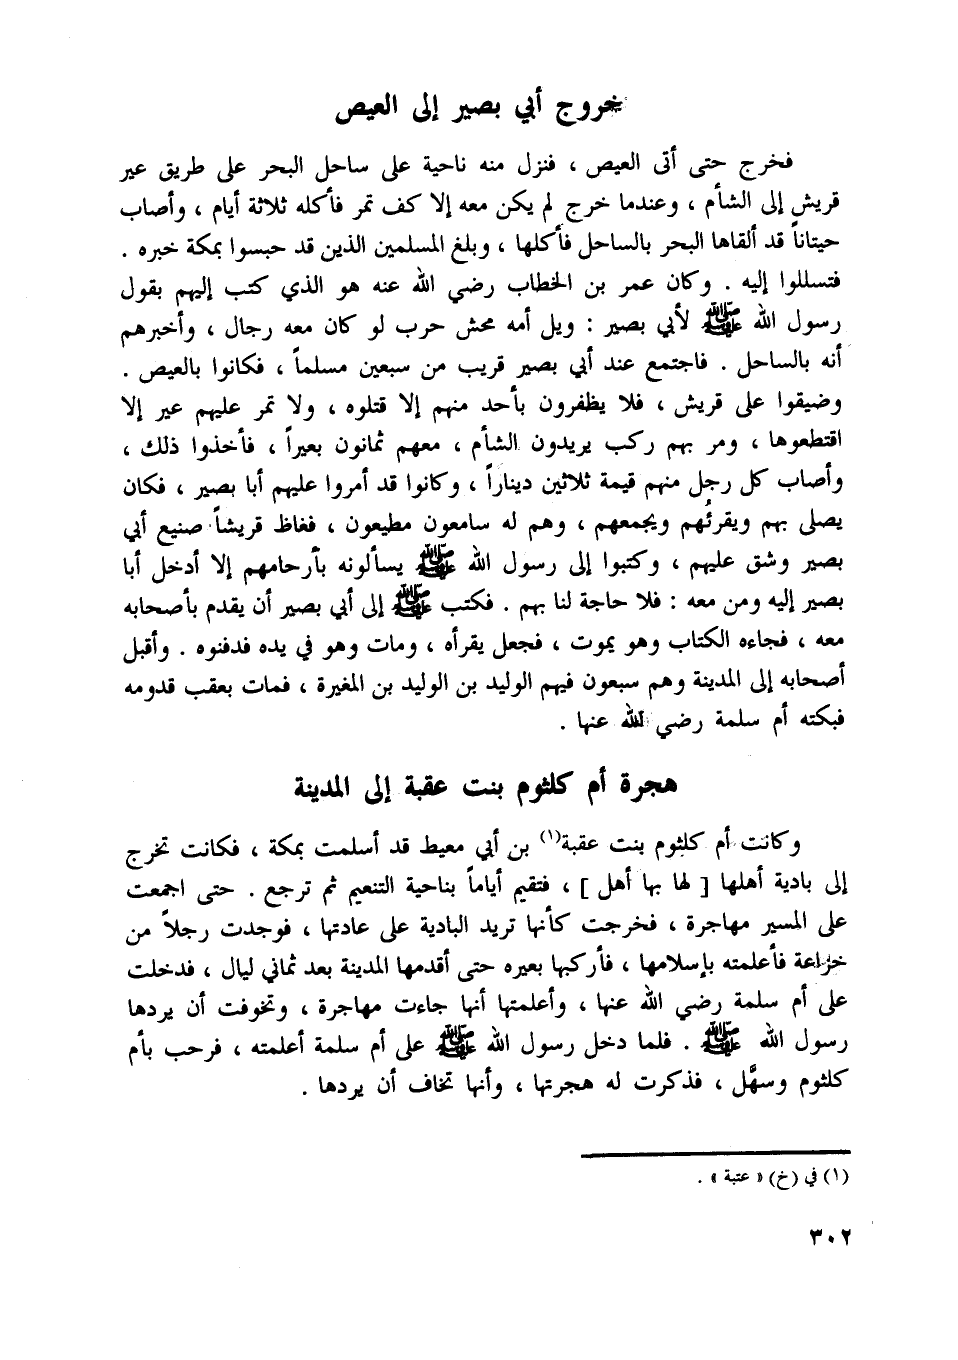 خروج أبي بصير إلى العيص
فخرج حتى أتى العيص ، فنزل منه ناحية على ساحل البحر على طريق عير
قريش إلى الشأم ، وعندما خرج لم يكن معه إلا كف تمر فأكله ثلاثة أيام ، وأصاب
حيتاناً قد ألقاها البحر بالساحل فأكلها ، وبلغ المسلمين الذين قد حبسوا بمكة خبره .
فتسللوا إليه . وكان عمر بن الخطاب رضي الله عنه هو الذي كتب إليهم بقول
رسول الله ﷺ لأبي بصير : ويل أمه محش حرب لو كان معه رجال ، وأخبرهم
أنه بالساحل . فاجتمع عند أبي بصير قريب من سبعين مسلماً ، فكانوا بالعيص .
وضيقوا على قريش ، فلا يظفرون بأحد منهم إلا قتلوه ، ولا تمر عليهم عير إلا
اقتطعوها ، ومر بهم ركب يريدون الشأم ، معهم ثمانون بعيراً ، فأخذوا ذلك ،
وأصاب كل رجل منهم قيمة ثلاثين ديناراً ، وكانوا قد أمروا عليهم أبا بصير ، فكان
يصلى بهم ويقرئُهم ويجمعهم ، وهم له سامعون مطيعون ، فغاظ قريشاً صنيع أبي
بصير وشق عليهم ، وكتبوا إلى رسول الله ﷺ يسألونه بأرحامهم إلا أدخل أبا
بصير إليه ومن معه : فلا حاجة لنا بهم . فكتب ﷺ إلى أبي بصير أن يقدم بأصحابه
معه ، فجاءه الكتاب وهو يموت ، فجعل يقرأه ، ومات وهو في يده فدفنوه . وأقبل
أصحابه إلى المدينة وهم سبعون فيهم الوليد بن الوليد بن المغيرة ، فمات بعقب قدومه
فبكته أم سلمة رضي الله عنها .
هجرة أم كلثوم بنت عقبة إلى المدينة
وكانت أم كلثوم بنت عقبة(١) بن أبي معيط قد أسلمت بمكة ، فكانت تخرج
إلى بادية أهلها [ لها بها أهل ] ، فتقيم أياماً بناحية التنعيم ثم ترجع . حتى اجمعت
على المسير مهاجرة ، فخرجت كأنها تريد البادية على عادتها ، فوجدت رجلاً من
خزاعة فأعلمته بإسلامها ، فأركبها بعيره حتى أقدمها المدينة بعد ثماني ليال ، فدخلت
على أم سلمة رضي الله عنها ، وأعلمتها أنها جاءت مهاجرة ، وتخوفت أن يردها
رسول الله ﷺ . فلما دخل رسول الله ﷺ على أم سلمة أعلمته ، فرحب بأم
كلثوم وسهَّل ، فذكرت له هجرتها ، وأنها تخاف أن يردها .
(١) في (خ) « عتبة » .
٣٠٢